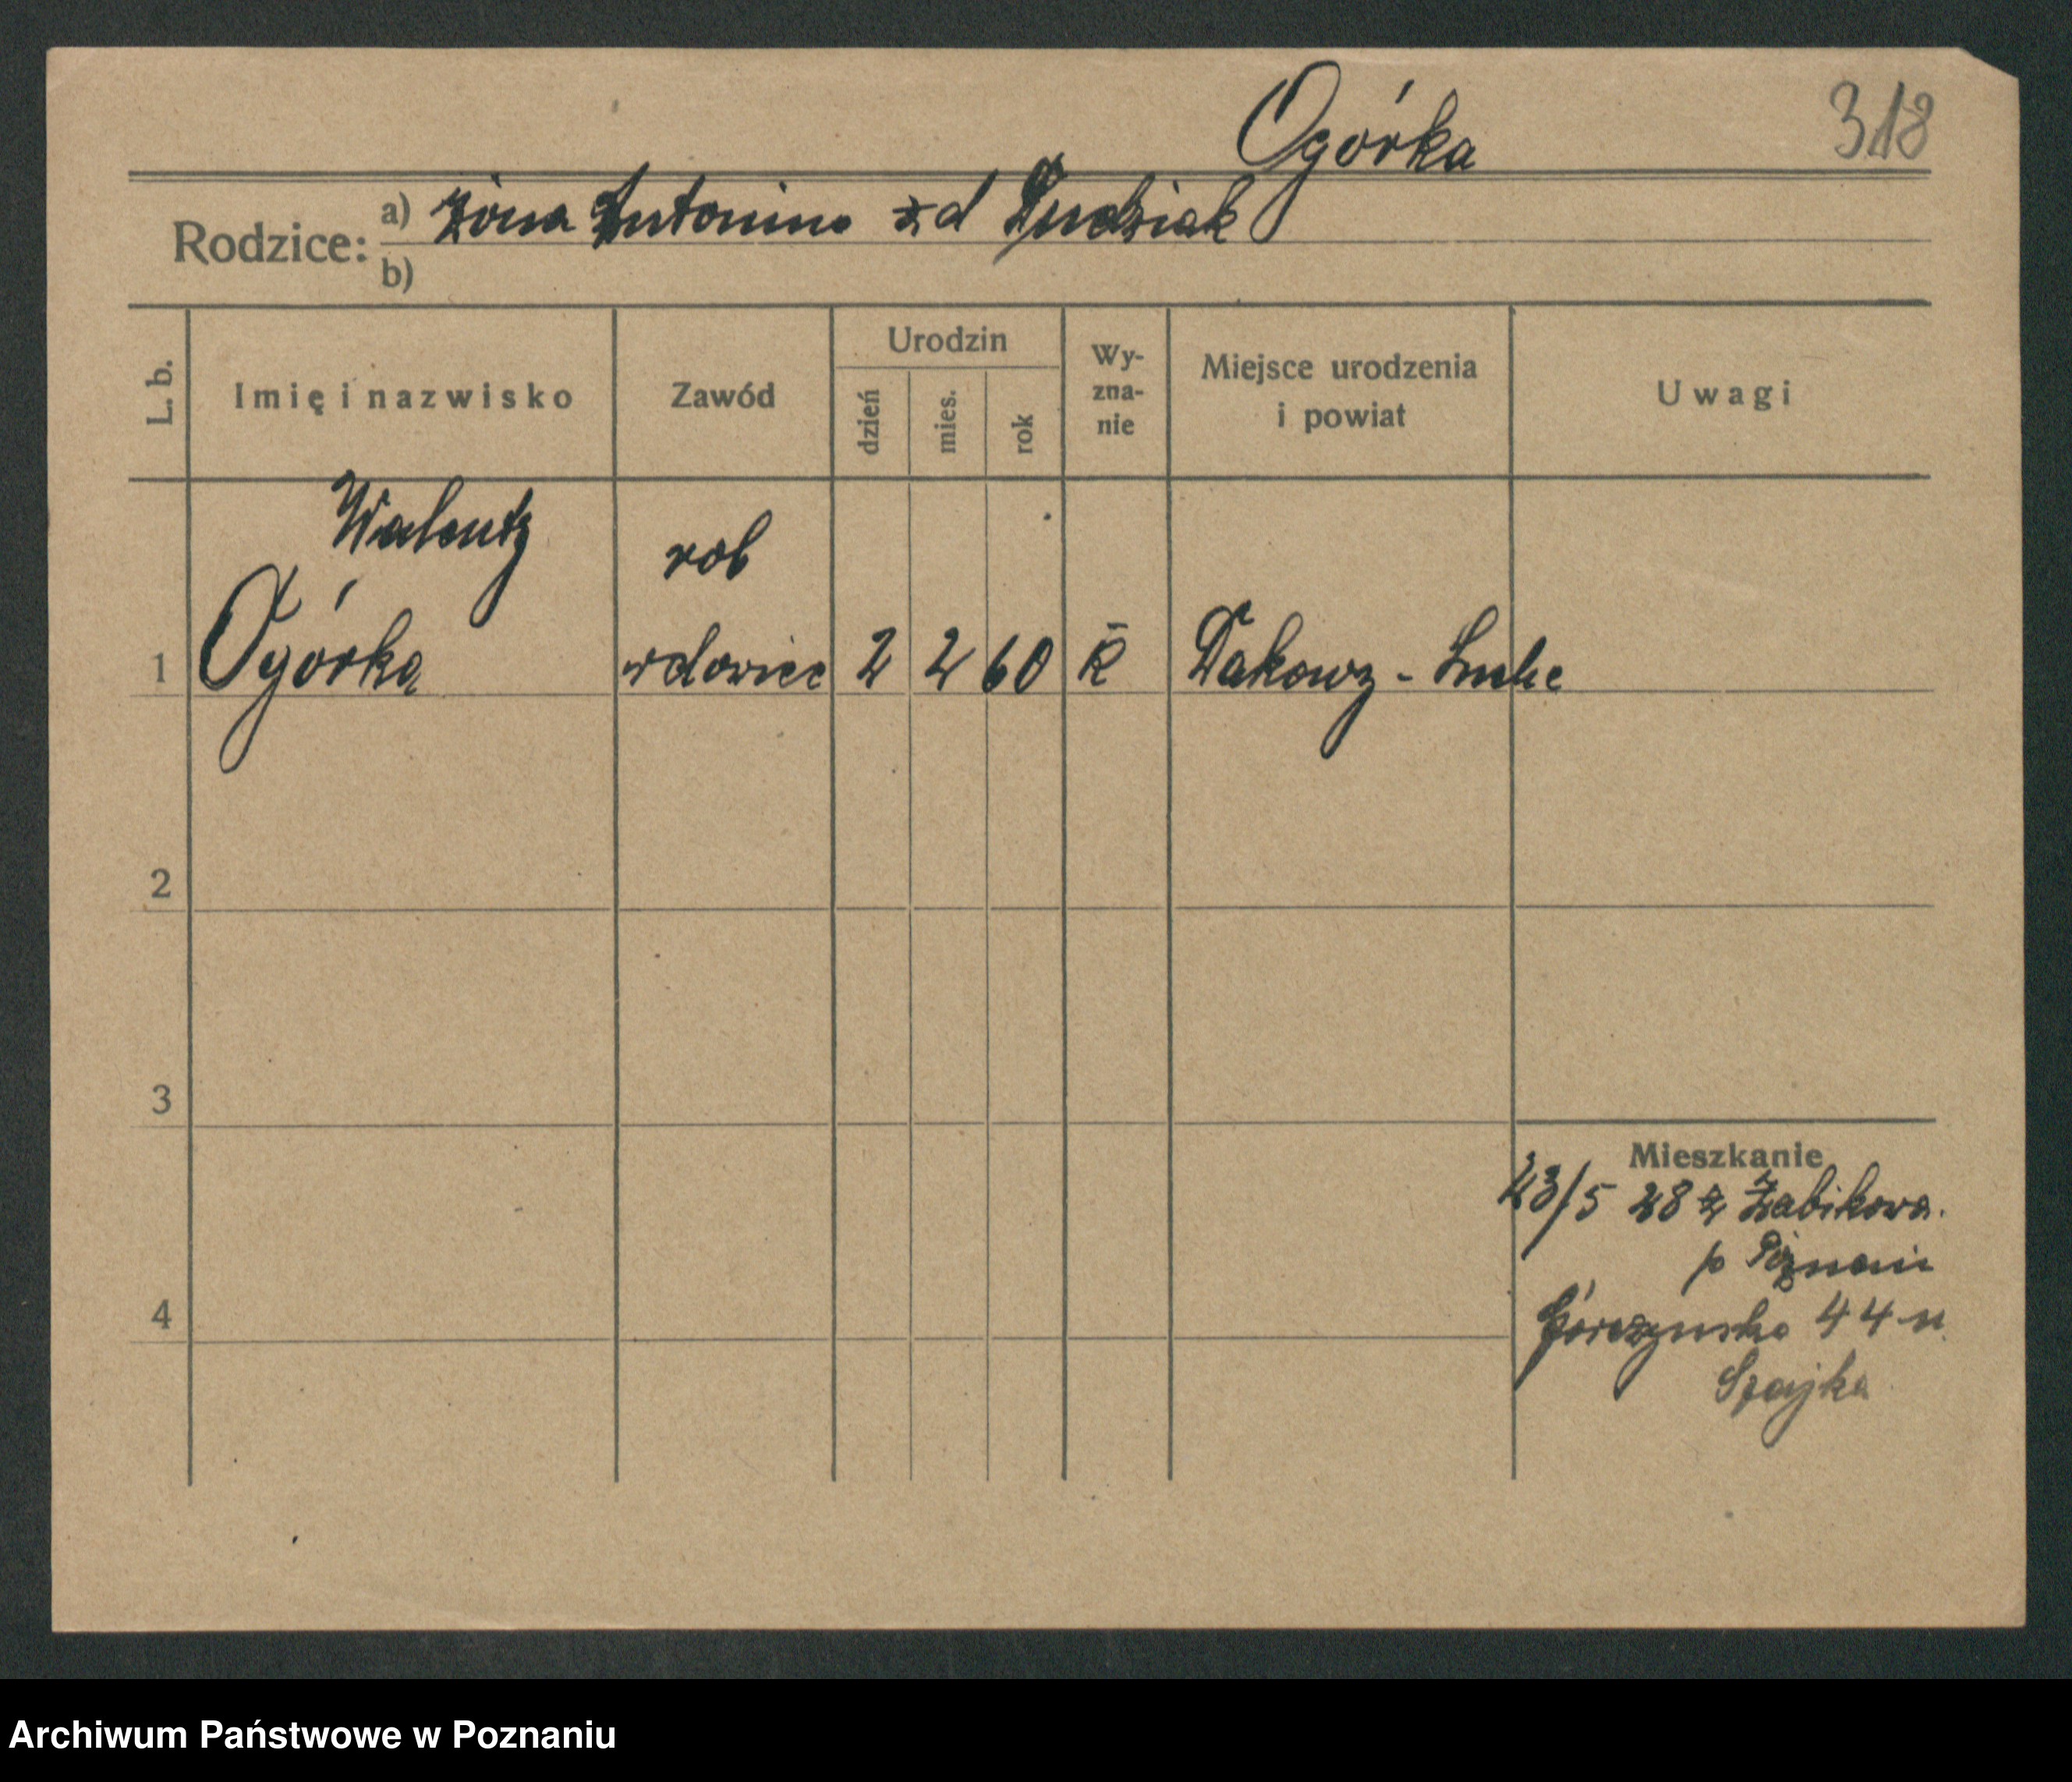 Ogórka
318
Rodzice: a) żona Antonina zd Dudziak
b)
L. b. Imię i nazwisko Zawód Urodzin dzień mies. rok Wy-zna-nie Miejsce urodzenia i powiat Uwagi
Walenty rob
1 Ogórka wdowiec 2 2 60 K Dakowy -
2
3
Mieszkanie
23/5 28 z Żabikowa.
p Poznań
4 Górczyńska 44 u
Szajka
Archiwum Państwowe w Poznaniu